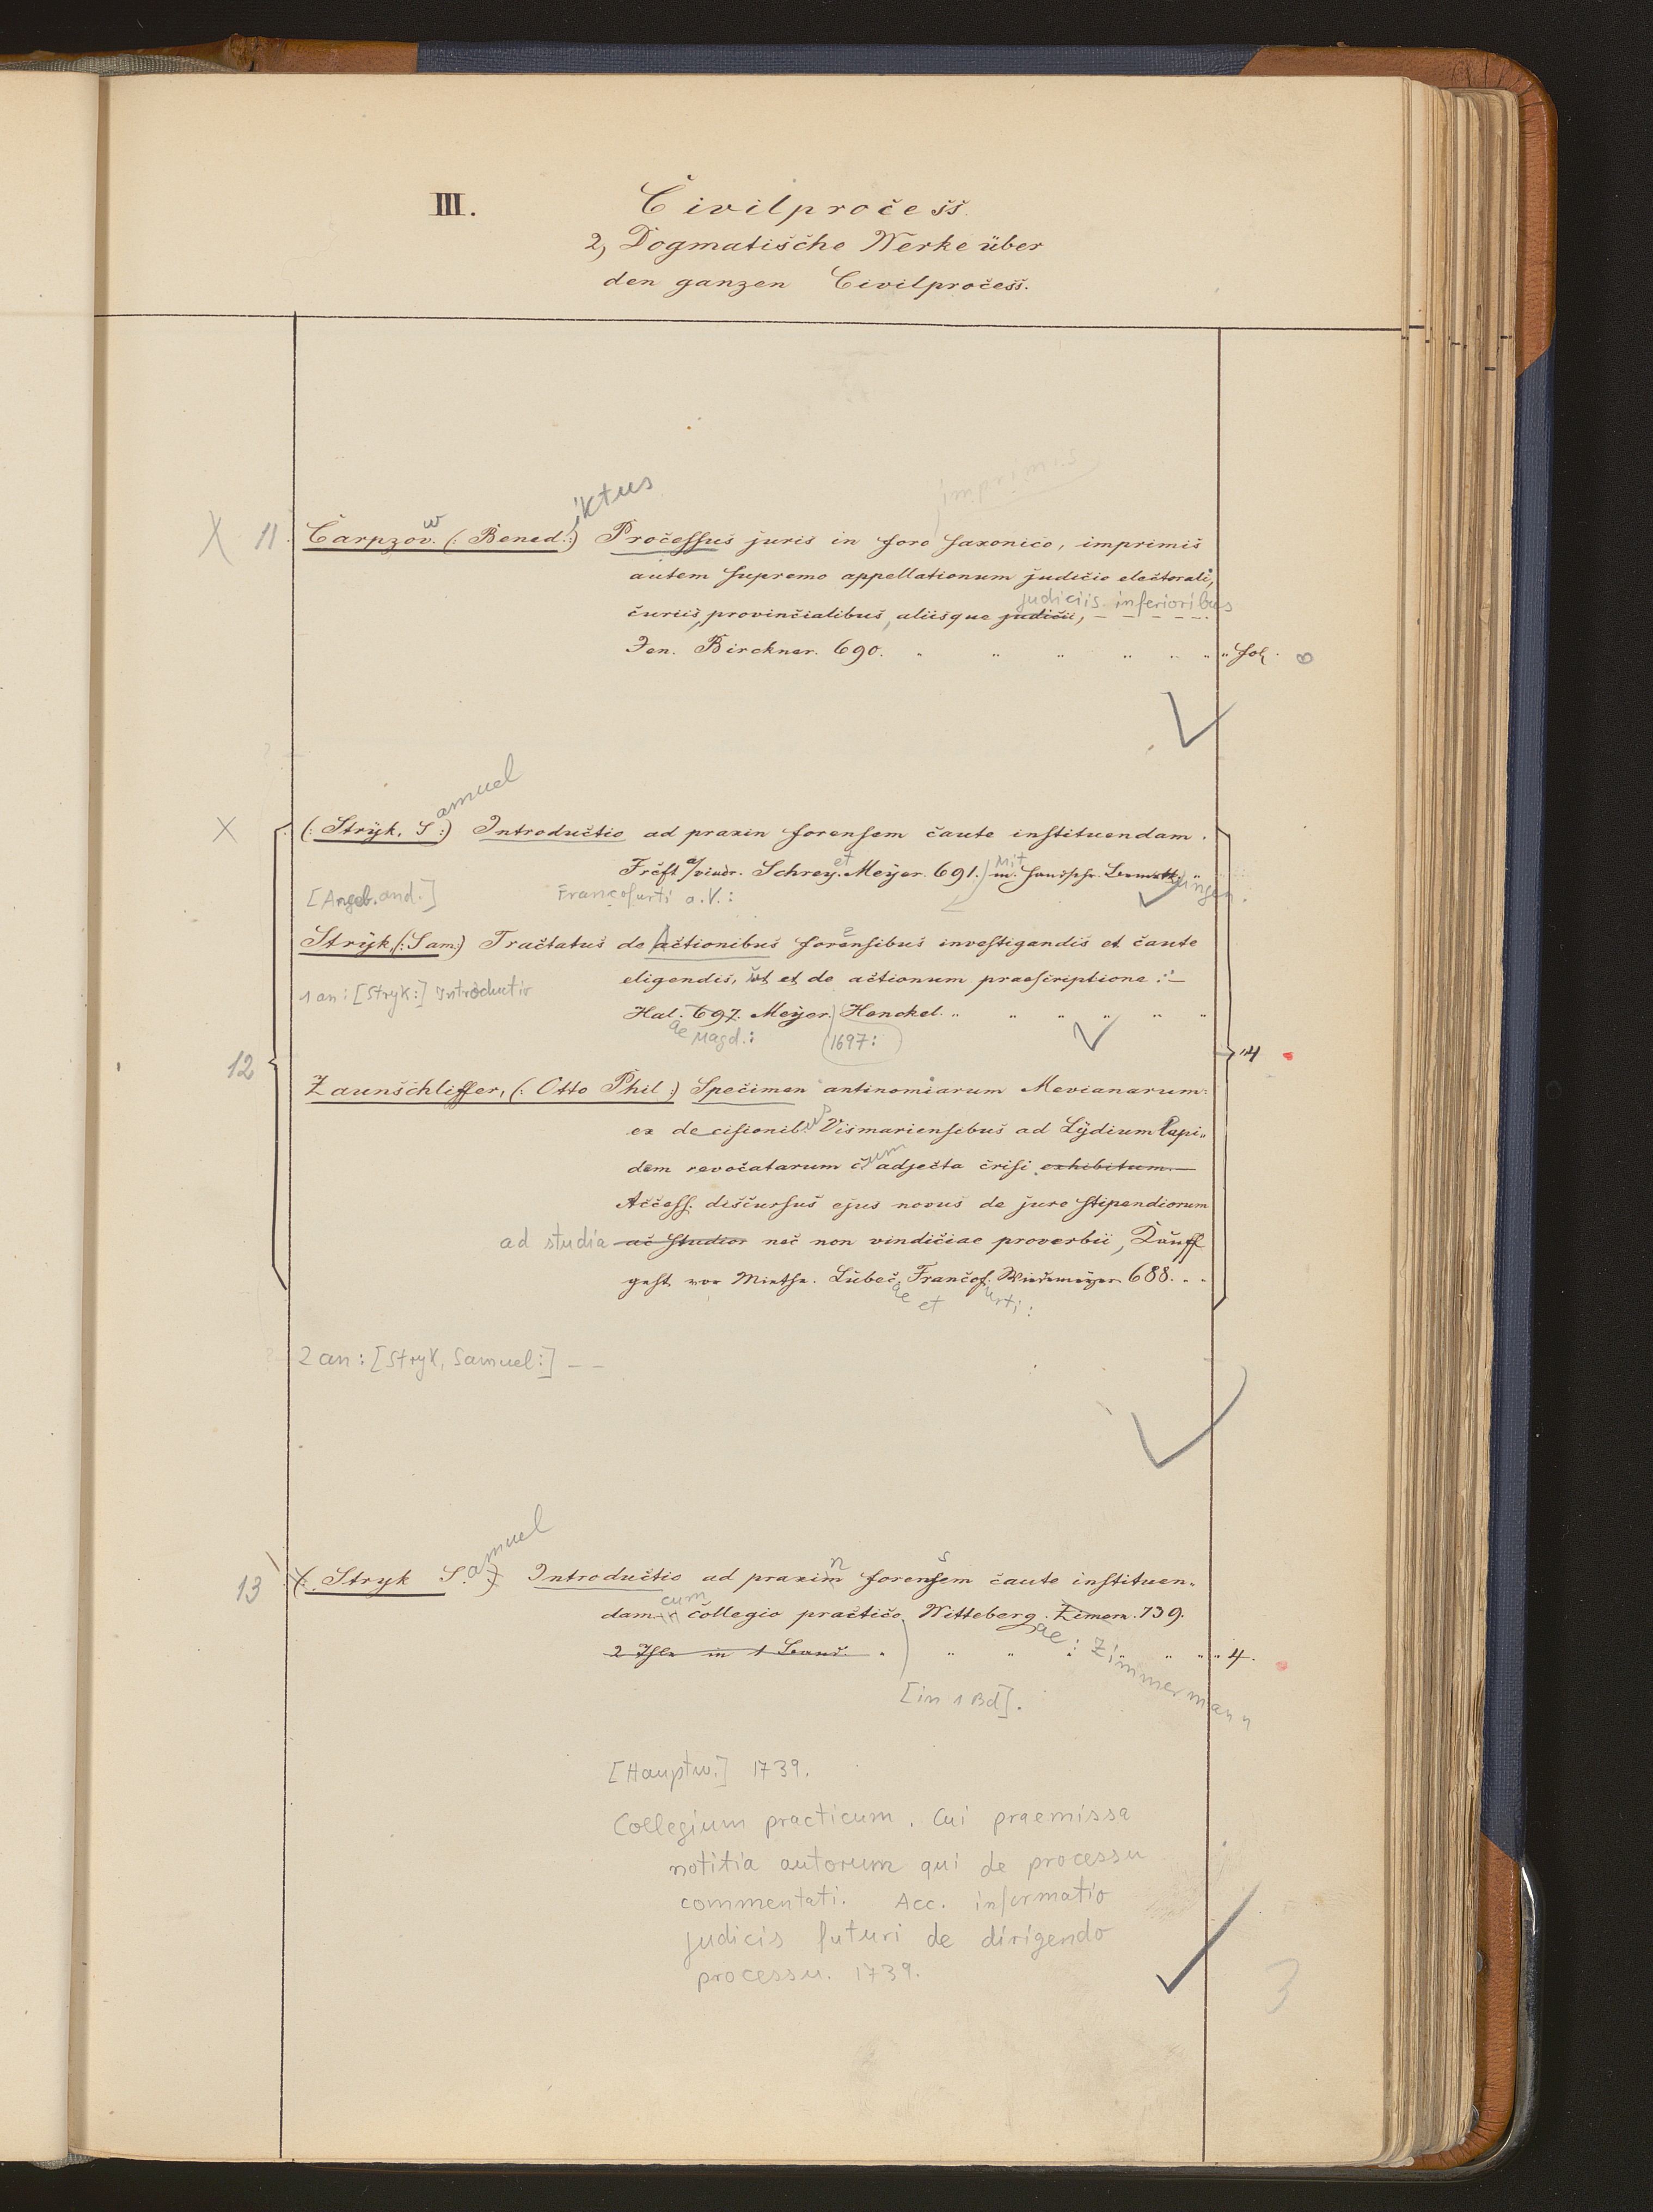 III. Civilprocess
2, Dogmatische Werke über
den ganzen Civilprocess.
imprimis
iktus
w
X 11. Carpzov. (: Bened.:) Processus juris in foro saxonico, imprimis
autem supremo appellationum judicio electorali,
judiciis inferioribus
curiis, provincialibus, aliisque judicii,
Jen. Birckner. 690. fol.
amuel
X (: Stryk, S:) Introductio ad praxin forensem caute instituendam.
et Mit
Frcft a/viadr. Schrey. Meyer. 691.) m.
ungen.
[Angeb. and.] Francofurti a.V.:
Stryk, (: Sam:) Tractatus de Actionibus forensibus investigandis et caute
eligendis, ut et de actionum praescriptione :-
1 an: [Stryk:] Introductio
Hal. 697. Meyer. Henckel.
ae Magd.: (1697:)
12 4
Zaunschliffer, (: Otto Phil:) Specimen antinomiarum Mevianarum:
ex decisionib. Vismariensibus ad Lydium Lapi-
us
dem revocatarum c. adjecta crisi exhibitum.
um
Access. discursus ejus novus de jure stipendiorum
ad studia ac studior nec non vindiciae proverbii, Kauff
geht vor Miethe. Lübec, Francof. Wiedemeyer 688.
ae et urti:
2 an: [Stryk, Samuel:] - -
amuel
n s
13 (: Stryk S.) Introductio ad praxim forensem caute instituen-
cum
dam. in collegio practico, Witteberg. Zimerm. 739.
ae: Zimmermann
2 Thle in 1 Band. 4.
[in 1 Bd].
[Hauptw.] 1739.
Collegium practicum. Cui praemissa
notitia autorum qui de processu
commentati. Acc. informatio
judicis futuri de dirigendo
processu. 1739.
3